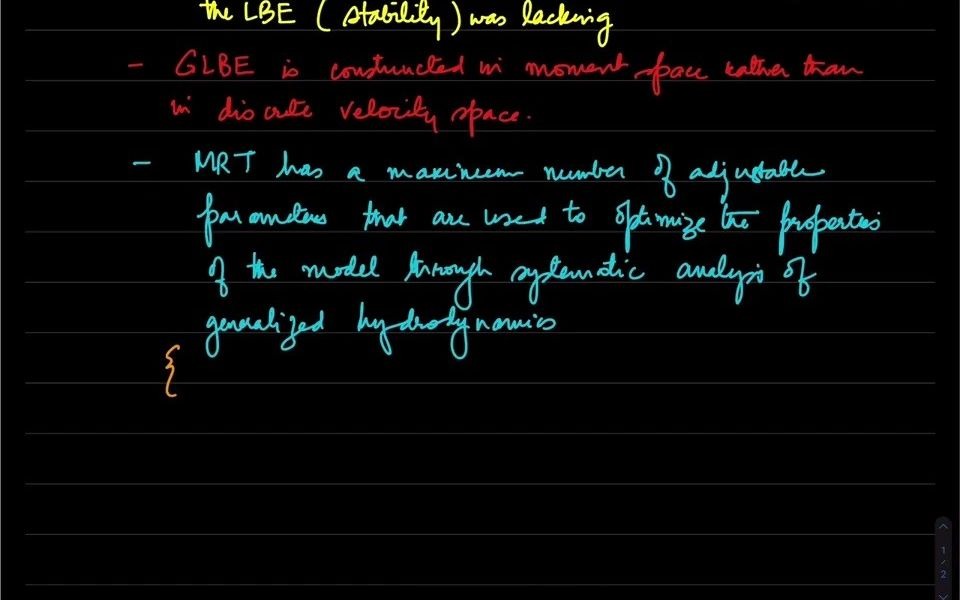 the LBE ( stability ) was lacking
- GLBE is constructed in moment space rather than
in discrete velocity space.
- MRT has a maximum number of adjustable
parameters that are used to optimize the properties
of the model through systematic analysis of
generalized hydrodynamics
{
1
/
2